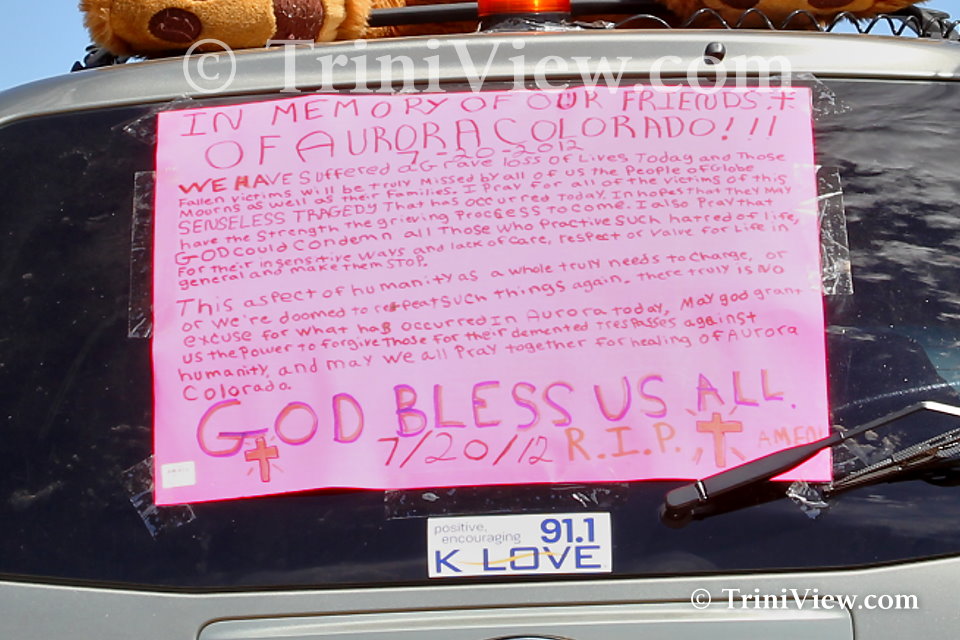 © TriniView.com
IN MEMORY OF OUR FRIENDS.
OF AURORA COLORADO!!!
7-20-2012
WE HAVE Suffered a Grave loss of Lives Today and Those
Fallen victims will be truly Missed by all of us the People of Globe
Mourns as well as their Families. I Pray for all of the victims of this
SENSELESS TRAGEDY That has occurred Today, In hopes that They MAY
have the Strength the grieving Proccess to come. I also Pray that
GOD could condemn all Those who Practive such hatred of life,
For their insensitive ways and lack of care, respect or value for Life in
general and make them STOP.
This aspect of humanity as a whole truly needs to change, or
or we're doomed to repeat such things again. there truly is NO
excuse for what has occurred in Aurora today, May god grant
us the Power to forgive Those for their demented Trespasses against
humanity, and may we all Pray together for healing of Aurora
Colorado.
GOD BLESS US ALL.
7/20/12 R.I.P. AMEN!
positive,
encouraging 91.1
K LOVE
© TriniView.com